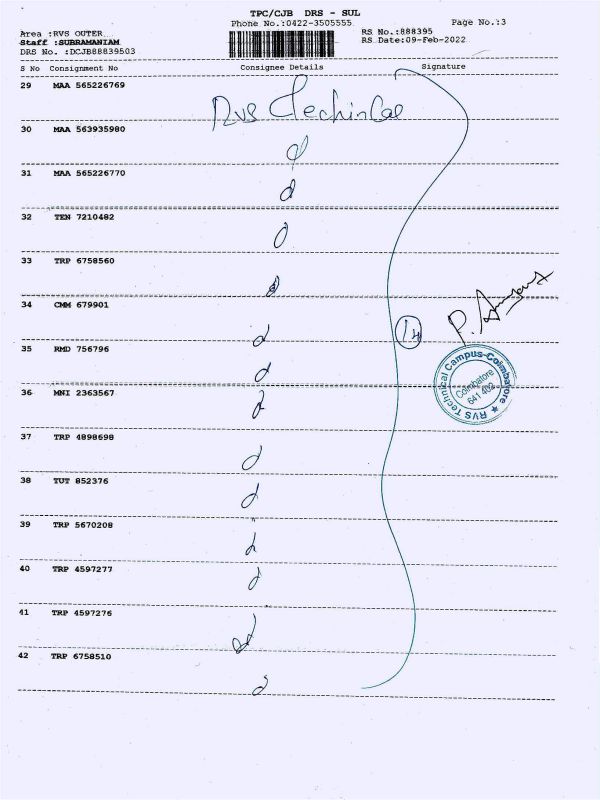 TPC/CJB DRS - SUL
Phone No.:0422-3505555 Page No.:3
Area :RVS OUTER RS No.:888395
Staff :SUBRAMANIAM RS Date:09-Feb-2022
DRS No. :DCJB88839503
S No Consignment No Consignee Details Signature
29 MAA 565226769
Rvs Techincal
30 MAA 563935980
31 MAA 565226770
32 TEN 7210482
33 TRP 6758560
34 CMM 679901
14
35 RMD 756796
RVS Technical Campus-Coimbatore
Coimbatore
641 402
36 MNI 2363567
37 TRP 4898698
38 TUT 852376
39 TRP 5670208
40 TRP 4597277
41 TRP 4597276
42 TRP 6758510